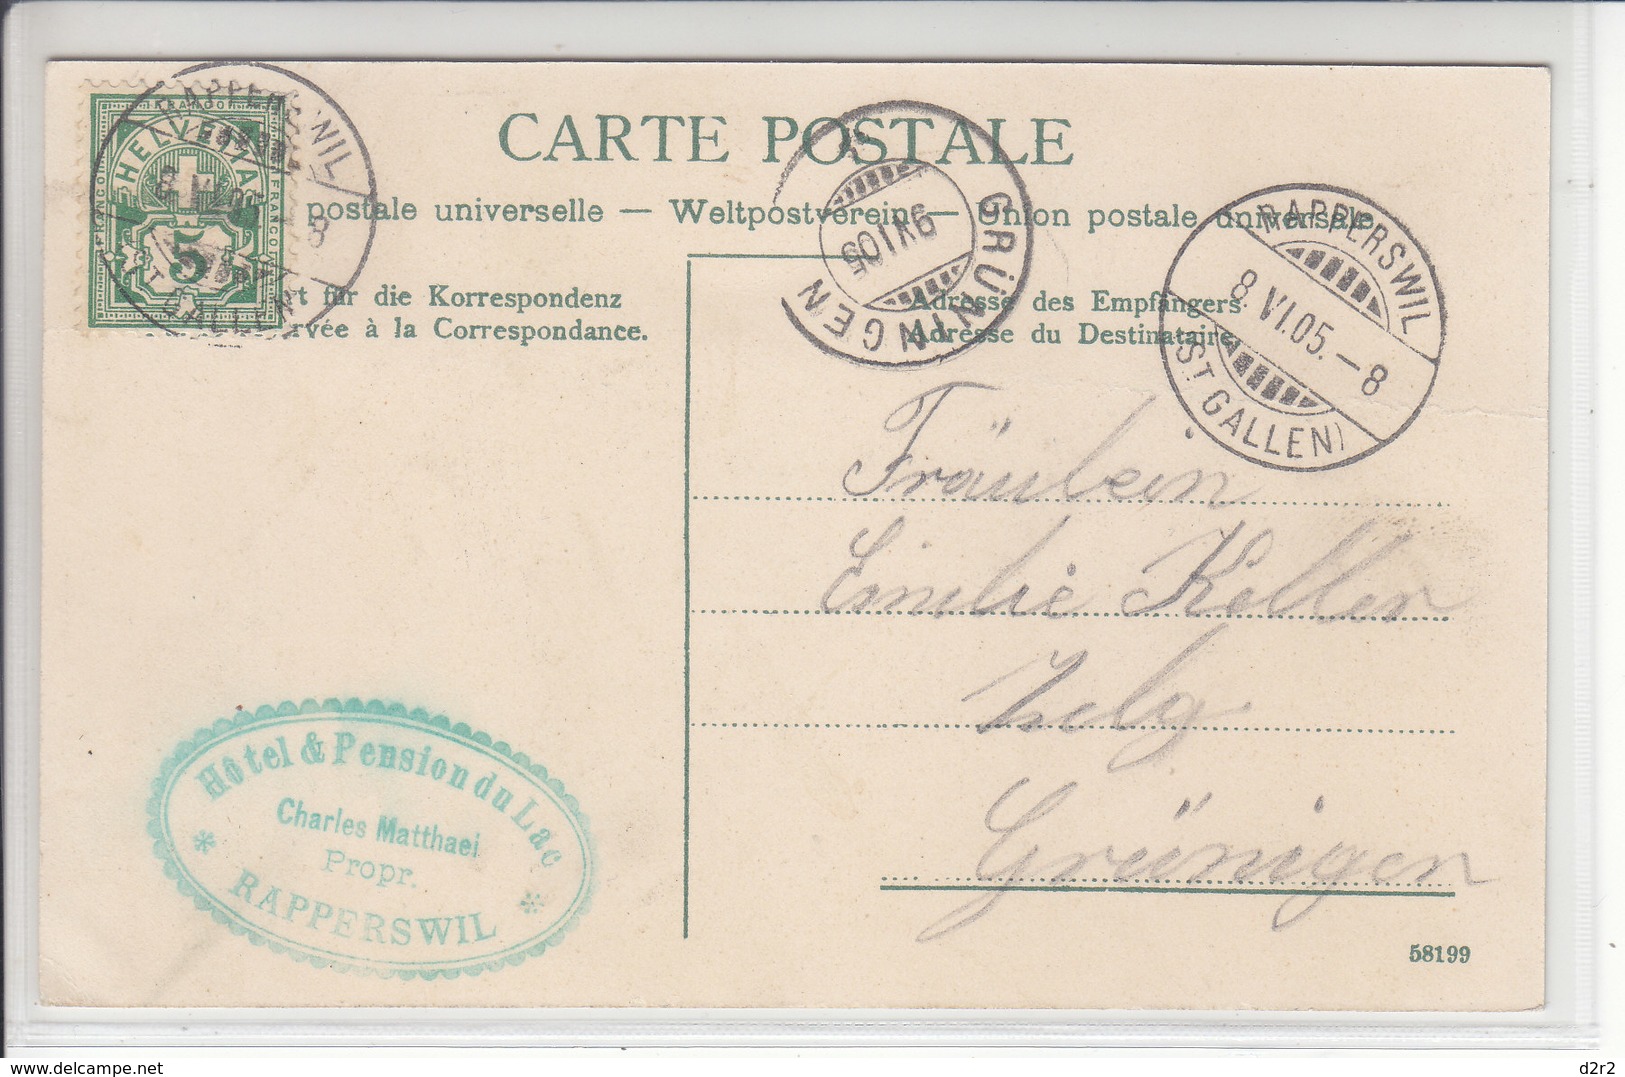 CARTE POSTALE
postale universelle — Weltpostverein — Union postale universale
t für die Korrespondenz
ervée à la Correspondance.
Adresse des Empfängers
Adresse du Destinataire
FRANCO
FRANCO
FRANCO
HELVETIA
5
RAPPERSWIL
8
GRÜNINGEN
9 VI 05
RAPPERSWIL
8. VI. 05. – 8
(ST GALLEN)
Fräulein
Emilie Keller
Zelg
Grünigen
Hôtel & Pension du Lac
Charles Matthaei
Propr.
RAPPERSWIL
58199
delcampe.net
d2r2